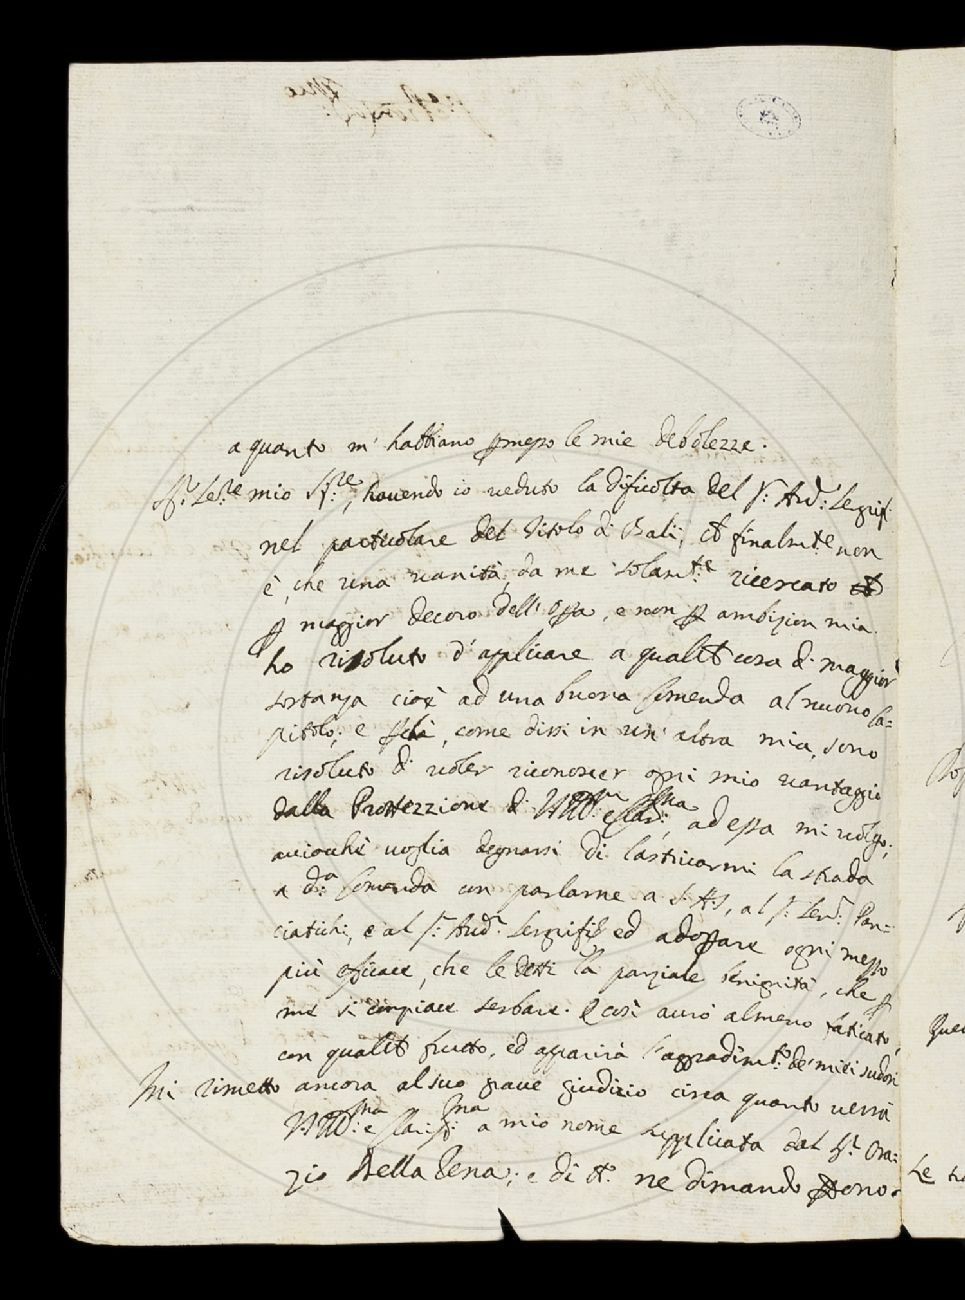 a quanto m' habbiano ꝑmesso le mie debolezze.
mio Sig.re, havendo io veduto la dificolta del S.r Aud.r Legnif.
nel particolare del titolo di Balì, et finalm.te non
è, che una vanità, da me solam.te ricercato
ꝑ maggior decoro dell' opa, e non ꝑ ambizion mia.
ho risoluto d' applicare a qualche cosa di maggior
sostanza cioè ad una buona Comenda al nuovo Ca=
pitolo; e già, come dissi in un' altra mia, sono
risoluto di voler riconoscer ogni mio vantaggio
dalla Protezzione di ad essa mi volgo;
acciochè voglia degnarsi di lastricarmi la strada
a d.a Comenda con parlarne a S.A.S, al S.r Sen.r Pan=
ciatichi, e al S.r Aud.r ed adoprare ogni mezzo
più efficace, che le detti la parziale benignità, che ꝑ
me si compiace serbare. E così avrò almeno faticato
con qualche frutto, ed apparirà l'aggradim.to de' miei sudori
Mi rimetto ancora al suo grave giudizio circa quanto verrà
a mio nome supplicata dal S.r Ora=
zio Della Pena; e di ne dimando